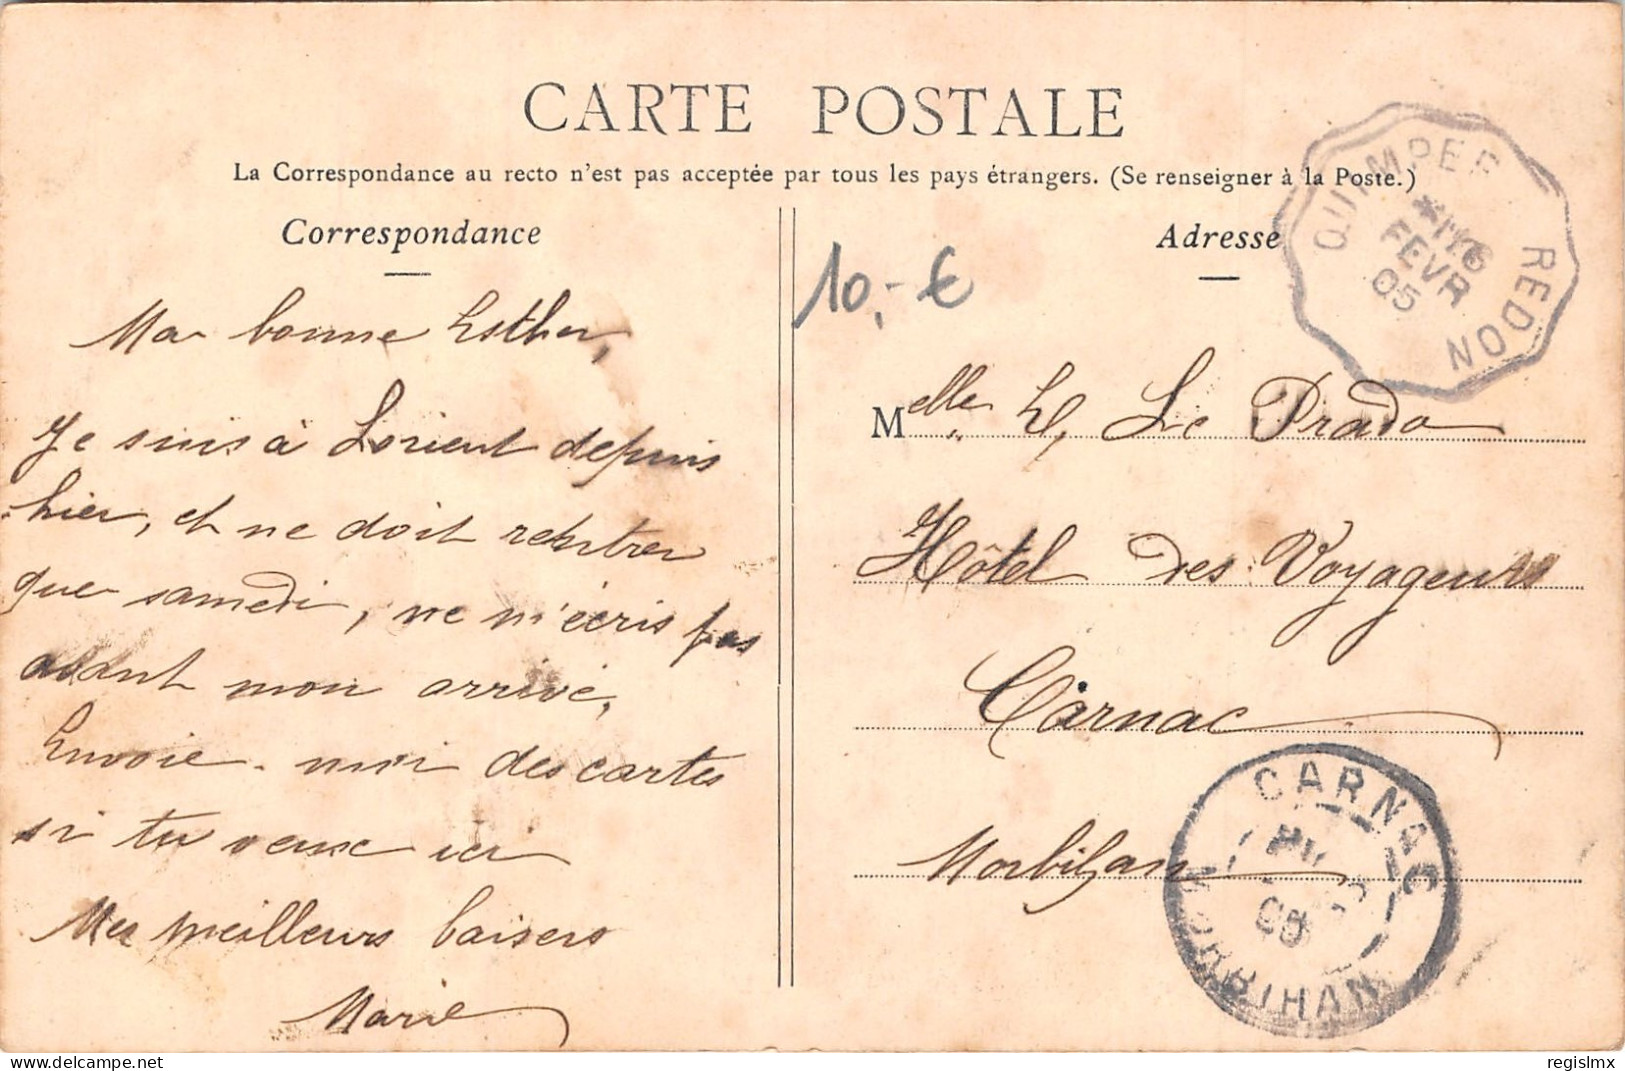 CARTE POSTALE
La Correspondance au recto n'est pas acceptée par tous les pays étrangers. (Se renseigner à la Poste.)
Correspondance
Ma bonne Esther,
Je suis à Lorient depuis
hier, et ne doit rentrer
que samedi, ne m'écris pas
avant mon arrivé,
Envoie-moi des cartes
si tu veux ici
Mes meilleurs baisers
Marie
10,-€
Adresse
QUIMPER REDON
FEVR
05
Melle E, Le Prado
Hôtel des Voyageurs
Carnac
Morbihan
CARNAC
MORBIHAN
05
regislmx